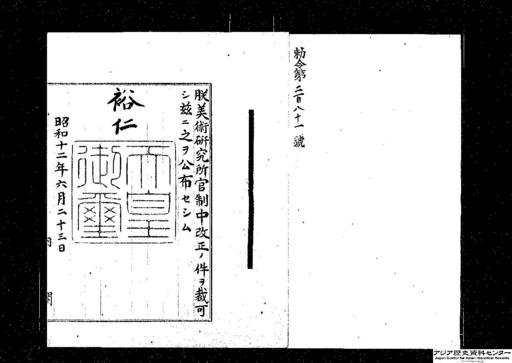 勅令第二百八十一號
朕美術研究所官制中改正ノ件ヲ裁可
シ茲ニ之ヲ公布セシム
裕仁
天皇
御璽
昭和十二年六月二十三日
内閣
アジア歴史資料センター
Japan Center for Asian Historical Records